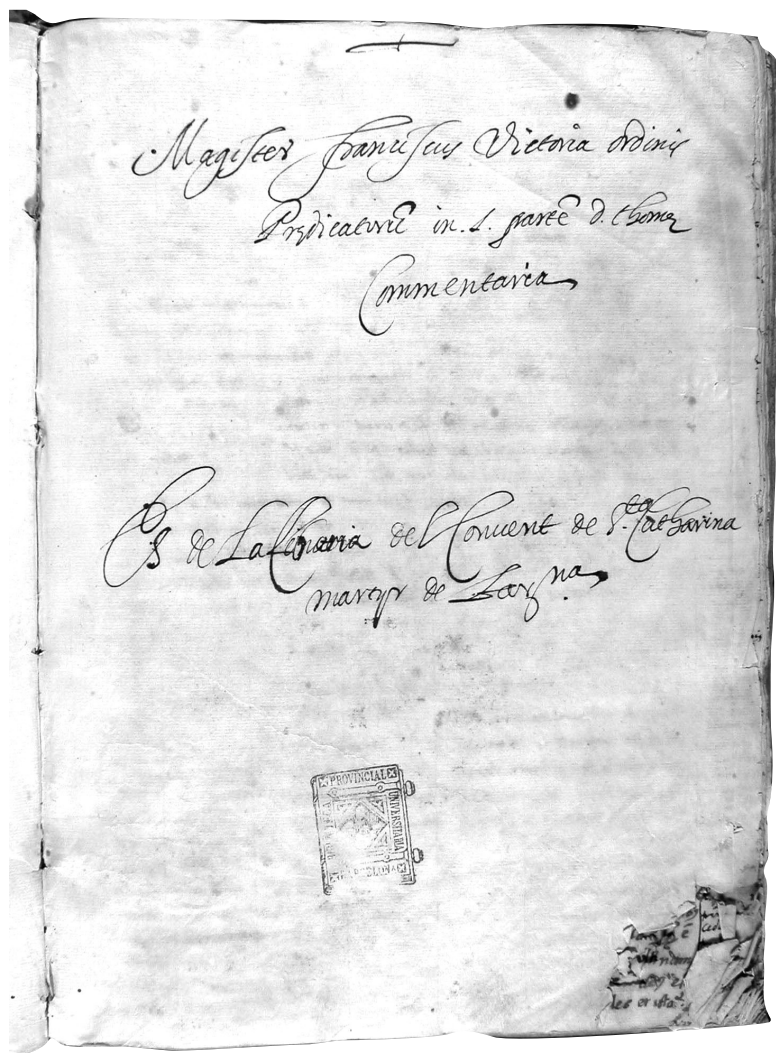 Magister franciscus Victoria ordinis
Prędicatorũ in .1. partẽ d. thomę
Commentaria
Es de La libraria del Convent de S.ta Catharina
martyr de Bar.na
PROVINCIAL
UNIVERSITARIA